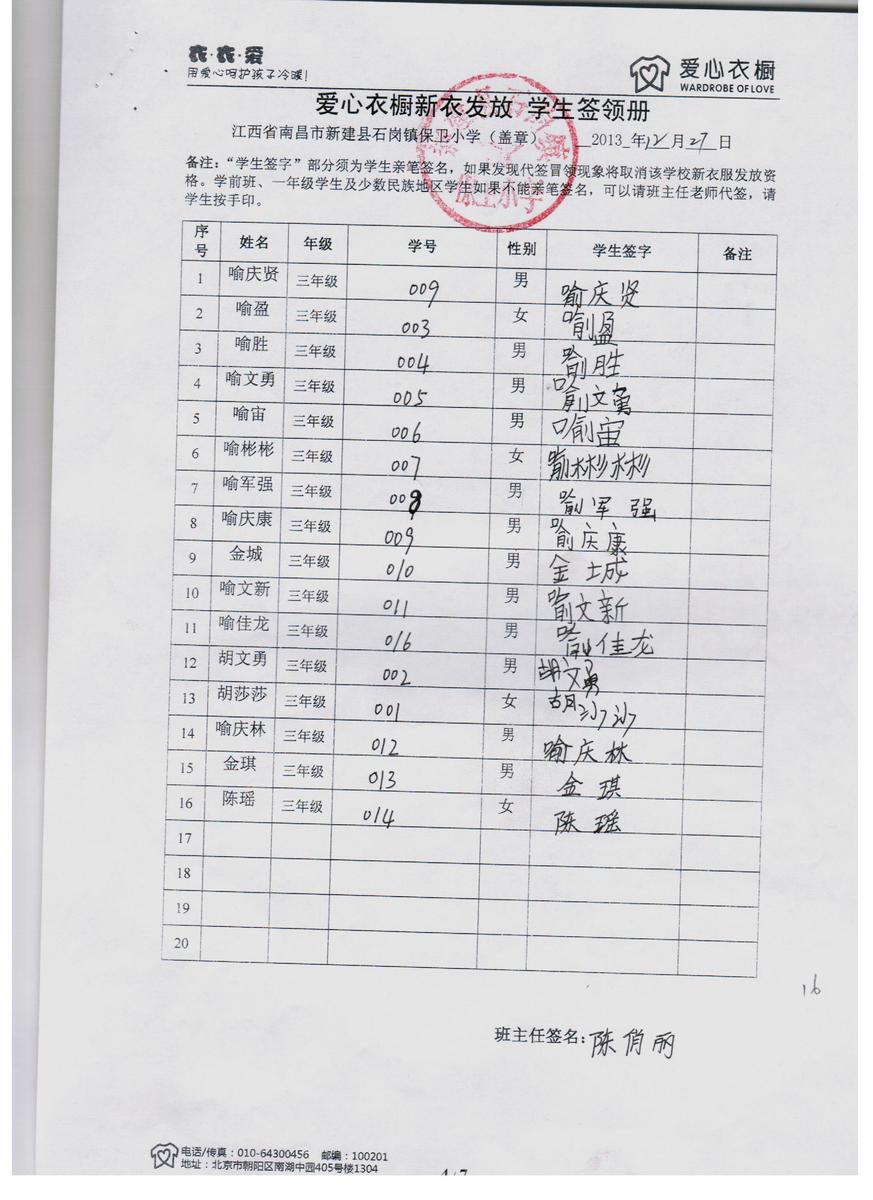 衣·衣·爱
用爱心呵护孩子冷暖!
爱心衣橱
WARDROBE OF LOVE
爱心衣橱新衣发放 学生签领册
江西省南昌市新建县石岗镇保卫小学（盖章） 2013 年12月27日
保卫小学
备注：“学生签字”部分须为学生亲笔签名，如果发现代签冒领现象将取消该学校新衣服发放资
格。学前班、一年级学生及少数民族地区学生如果不能亲笔签名，可以请班主任老师代签，请
学生按手印。
序号 姓名 年级 学号 性别 学生签字 备注
1 喻庆贤 三年级 009 男 喻庆贤
2 喻盈 三年级 003 女 喻盈
3 喻胜 三年级 004 男 喻胜
4 喻文勇 三年级 005 男 喻文勇
5 喻宙 三年级 006 男 喻宙
6 喻彬彬 三年级 007 女 喻彬彬
7 喻军强 三年级 008 男 喻军强
8 喻庆康 三年级 009 男 喻庆康
9 金城 三年级 010 男 金城
10 喻文新 三年级 011 男 喻文新
11 喻佳龙 三年级 016 男 喻佳龙
12 胡文勇 三年级 002 男 胡文勇
13 胡莎莎 三年级 001 女 胡沙沙
14 喻庆林 三年级 012 男 喻庆林
15 金琪 三年级 013 男 金琪
16 陈瑶 三年级 014 女 陈瑶
17
18
19
20
16
班主任签名：陈俏丽
电话/传真：010-64300456 邮编：100201
地址：北京市朝阳区南湖中园405号楼1304